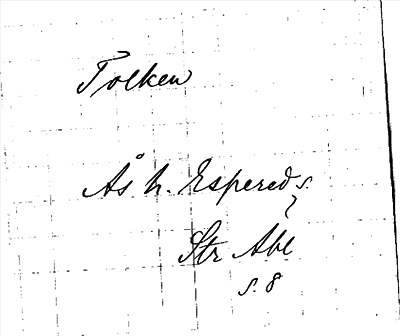 Tolken
Ås h. Espereds.
Str Abl
s. 8